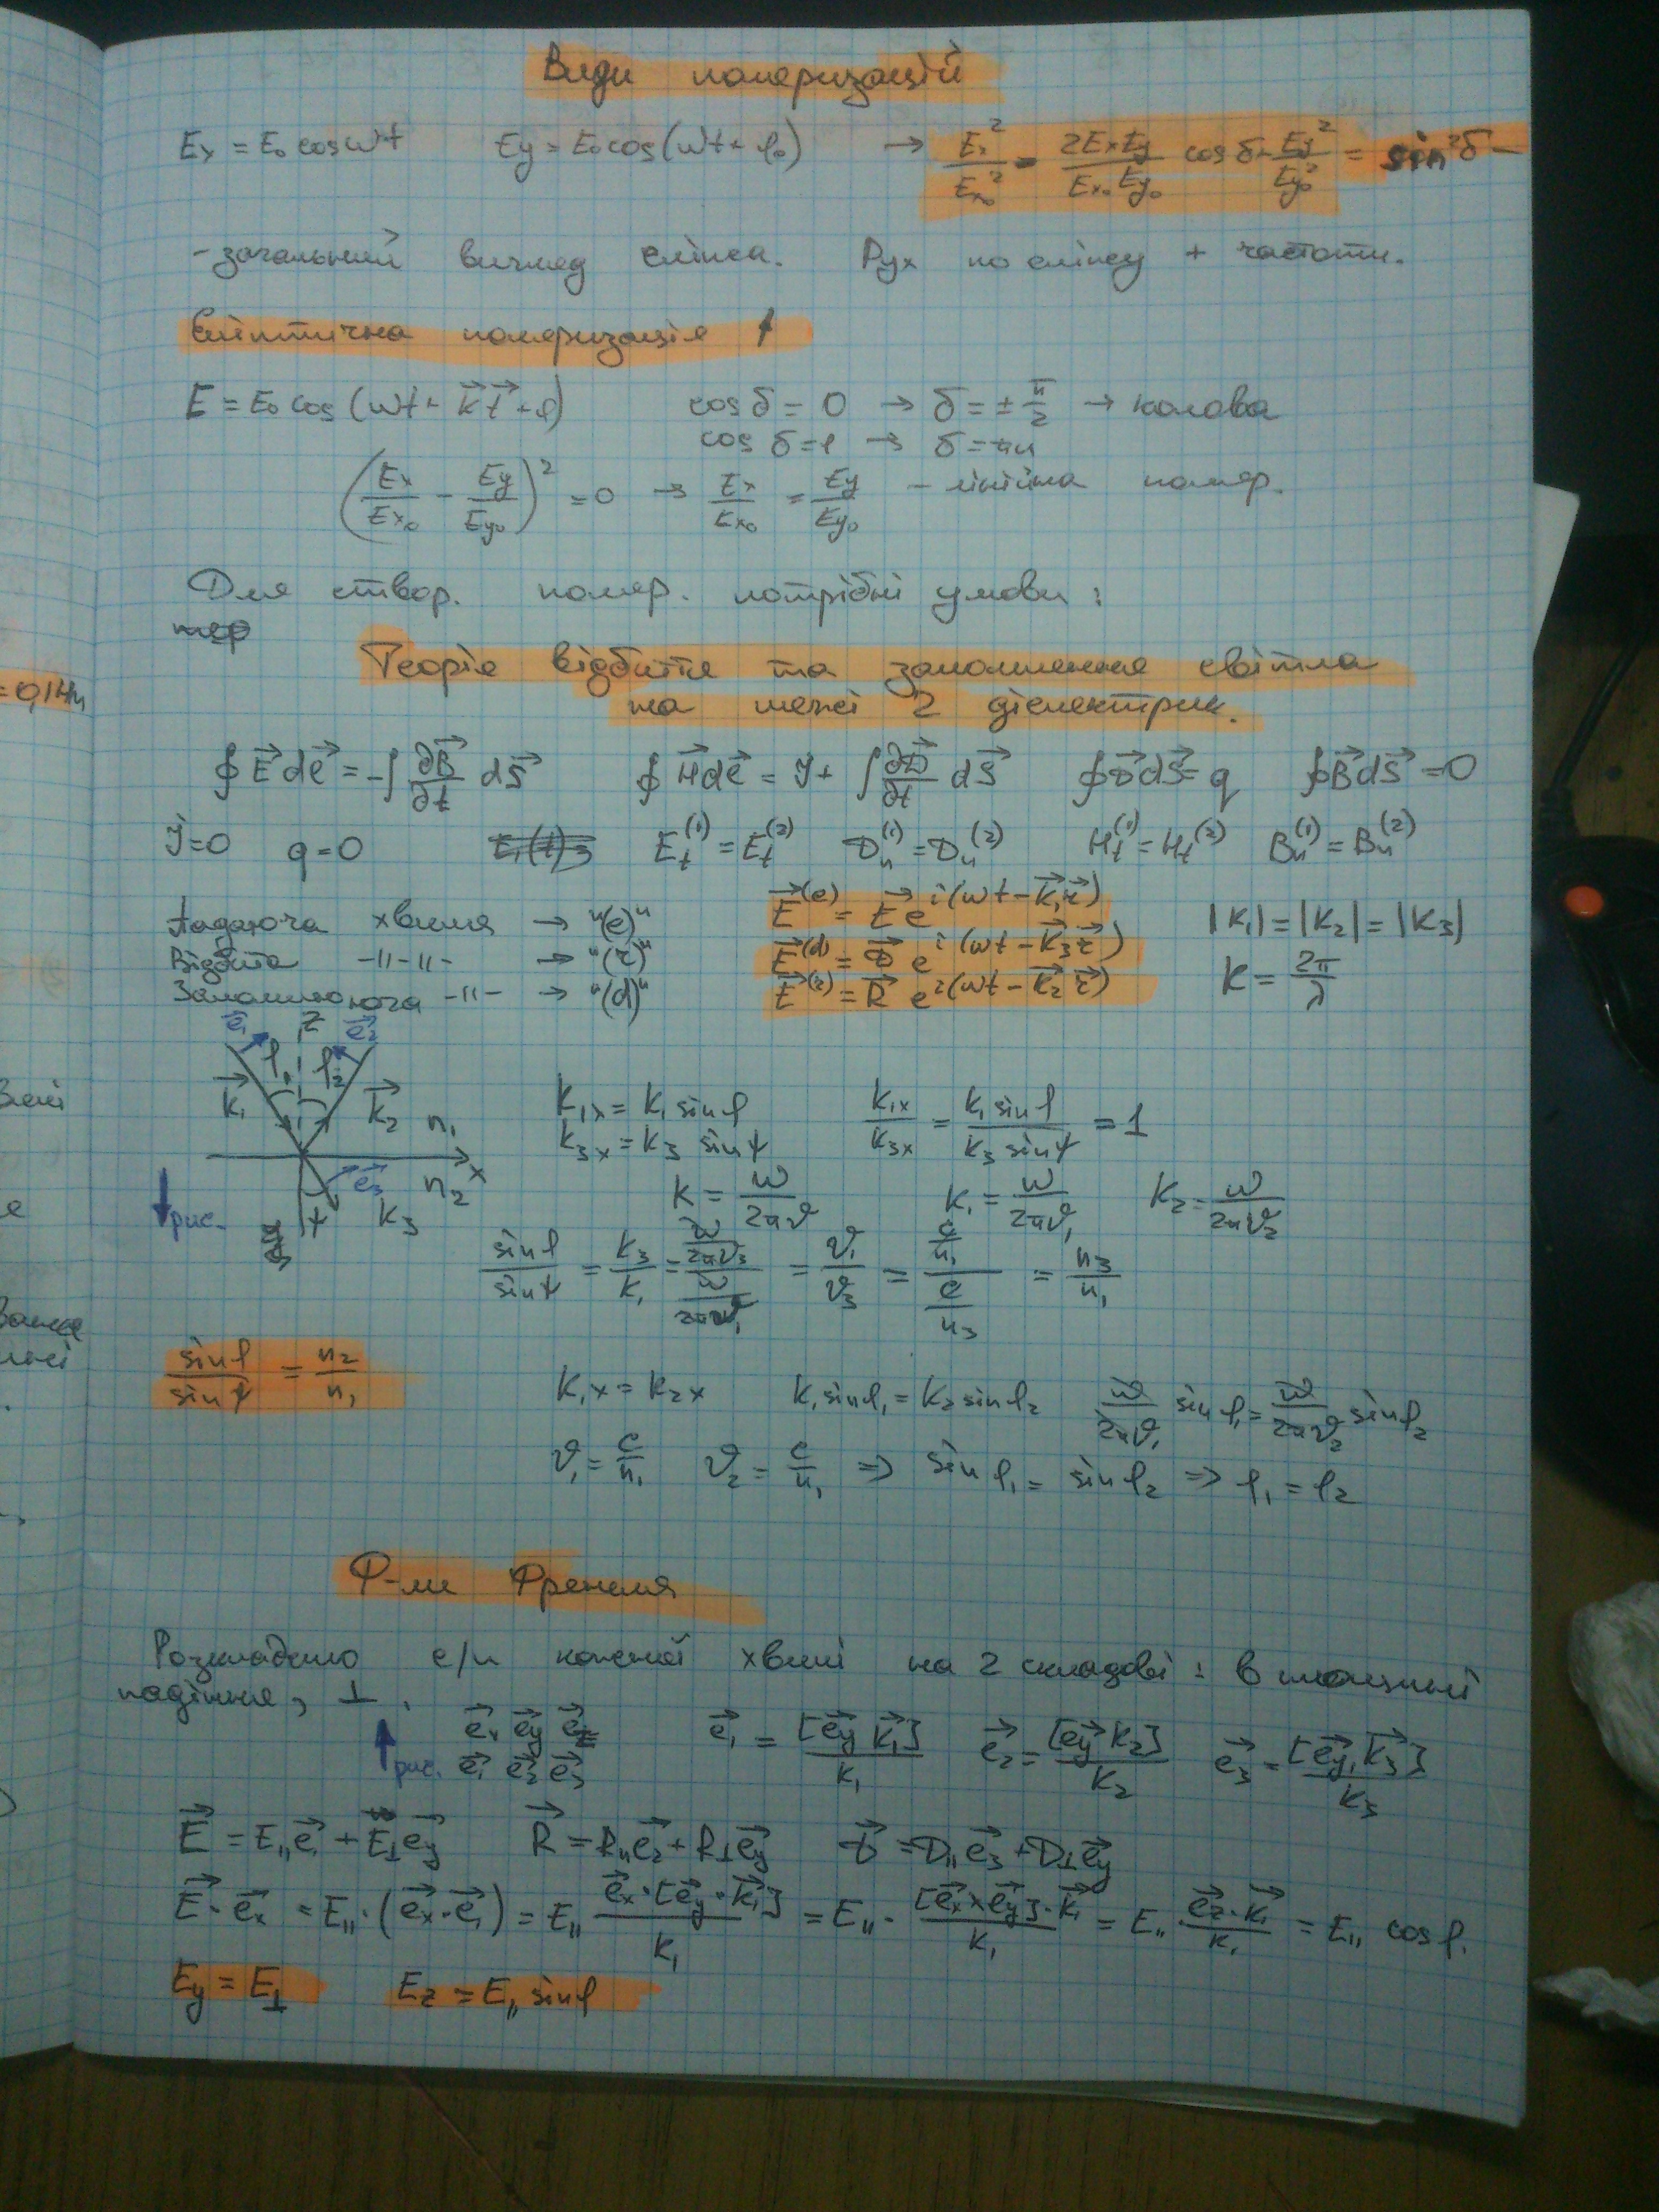 Види поляризацій
Ex = E₀ cos ωt    Ey = E₀ cos(ωt + φ₀)    → Ex²/Ex₀² - 2ExEy/Ex₀Ey₀ cos δ + Ey²/Ey₀² = sin²δ –
- загальний вигляд еліпса. Рух по еліпсу + частоти.
Еліптична поляризація ↑
E = E₀ cos (ωt - k⃗ r⃗ + φ)    cos δ = 0 → δ = ± π/2 → колова
cos δ = 1 → δ = πn
(Ex/Ex₀ - Ey/Ey₀)² = 0 → Ex/Ex₀ = Ey/Ey₀ – лінійна поляр.
Для створ. поляр. потрібні умови :
Теорія відбиття та заломлення світла
на межі 2 діелектрик.
∮ E⃗ dℓ⃗ = -∫ ∂B⃗/∂t dS⃗    ∮ H⃗ dℓ⃗ = J + ∫ ∂D⃗/∂t dS⃗    ∮ D⃗ dS⃗ = q    ∮ B⃗ dS⃗ = 0
J = 0    q = 0    Eₜ⁽¹⁾ = Eₜ⁽²⁾    Dₙ⁽¹⁾ = Dₙ⁽²⁾    Hₜ⁽¹⁾ = Hₜ⁽²⁾    Bₙ⁽¹⁾ = Bₙ⁽²⁾
Падаюча хвиля → "(e)"    E⃗⁽ᵉ⁾ = E⃗ e^{i(ωt - k⃗₁ r⃗)}    |k₁| = |k₂| = |k₃|
Відбита -"-"- → "(r)"    E⃗⁽ᵈ⁾ = D⃗ e^{i(ωt - k⃗₃ r⃗)}    k = 2π/λ
Заломлююча -"- → "(d)"    E⃗⁽ʳ⁾ = R⃗ e^{i(ωt - k⃗₂ r⃗)}
e⃗₁ z e⃗₂
φ₁ φ₂
k⃗₁ k⃗₂ n₁
x
e⃗₃ n₂
ψ k₃
рис.
k₁x = k₁ sin φ    k₁x/k₃x = k₁ sin φ / k₃ sin ψ = 1
k₃x = k₃ sin ψ
k = ω/2πϑ    k₁ = ω/2πϑ₁    k₂ = ω/2πϑ₂
sin φ / sin ψ = k₃/k₁ = (ω/2πϑ₃)/(ω/2πϑ₁) = ϑ₁/ϑ₃ = (c/n₁)/(c/n₃) = n₃/n₁
sin φ / sin ψ = n₂/n₁    k₁x = k₂x    k₁ sin φ₁ = k₂ sin φ₂    ω/2πϑ₁ sin φ₁ = ω/2πϑ₂ sin φ₂
ϑ₁ = c/n₁    ϑ₂ = c/n₁ ⇒ sin φ₁ = sin φ₂ ⇒ φ₁ = φ₂
Ф-ли Френеля
Розкладемо е/п кожної хвилі на 2 складові : в площині
падіння, ⊥ .
рис.
e⃗x e⃗y e⃗z    e⃗₁ = [e⃗y k⃗₁]/k₁    e⃗₂ = [e⃗y k₂]/k₂    e⃗₃ = [e⃗y, k⃗₃]/k₃
e⃗₁ e⃗₂ e⃗₃
E⃗ = E∥e⃗₁ + E⊥e⃗y    R⃗ = R∥e⃗₂ + R⊥e⃗y    D⃗ = D∥e⃗₃ + D⊥e⃗y
E⃗ · e⃗x = E∥ · (e⃗x · e⃗₁) = E∥ e⃗x · [e⃗y · k⃗₁]/k₁ = E∥ · [e⃗x × e⃗y] · k⃗₁/k₁ = E∥ e⃗z · k⃗₁/k₁ = E∥ cos φ.
Ey = E⊥    Ez = E∥ sin φ
= 0,1 Нм